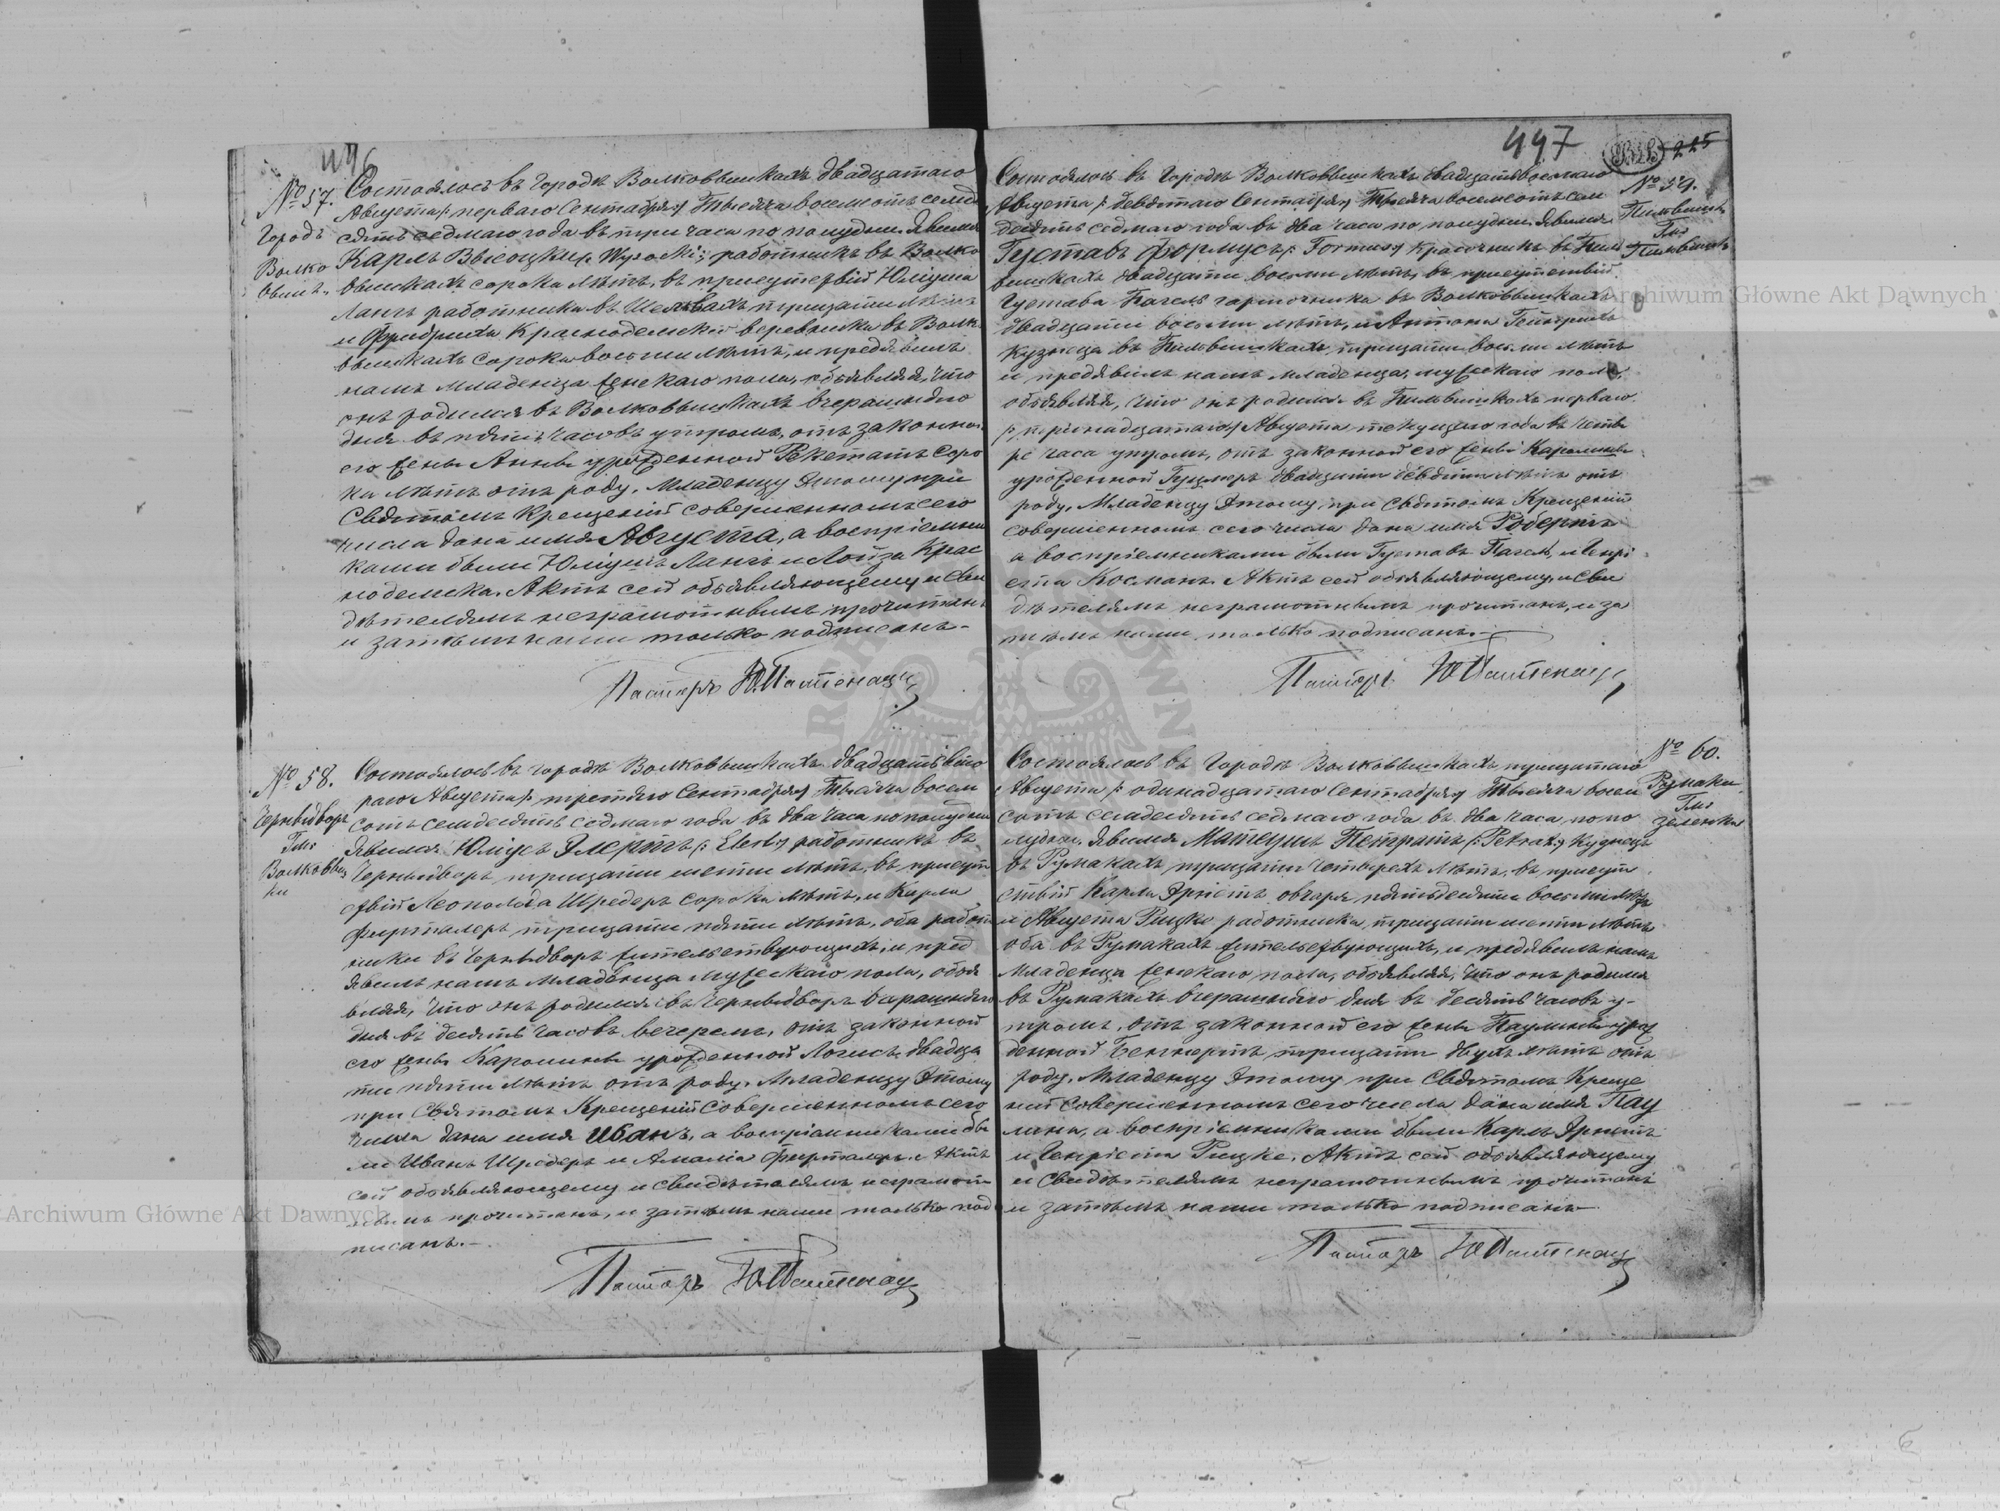 446
№ 57.
Городъ
Волко
Состоялось въ Городѣ Волковышкахъ двадцатаго
Августа /: перваго Сентября :/ Тысяча восемьсотъ семьде
сятъ седмаго года въ три часа по полудни. Явился
Карлъ Высоцки работникъ въ Волко
вышкахъ сорока лѣтъ, въ присутствіи Юліуша
Лангъ работника въ тридцати лѣтъ
и Фридриха веревника въ Волко
вышкахъ сорока восьми лѣтъ, и предъявилъ
намъ младенца женскаго пола, объявляя, что
онъ родился въ Волковышкахъ вчерашняго
дня въ пять часовъ утромъ, отъ законной
его жены Анны урожденной соро
ка лѣтъ отъ роду. Младенцу этому при
Святомъ Крещеніи совершенномъ сего
числа дано имя Августа, а воспріемни
ками были Юліушъ Лангъ и Лоиза Крас
нодемска. Актъ сей объявляющему и сви
дѣтелямъ неграмотнымъ прочитанъ
и затѣмъ нами только подписанъ.-
Пасторъ
№ 58.
Чернывдворъ
Гм:
Волковыш
ки
Состоялось въ Городѣ Волковышкахъ двадцать вто
раго Августа /: третяго Сентября :/ Тысяча восем
сотъ семьдесятъ седмаго года въ два часа по полудни
Явился Юліусъ Элертъ /: Elert :/ работникъ въ
Чернымдворѣ тридцати шести лѣтъ, въ присут
ствіи Леопольда Шредеръ сорока лѣтъ, и Карла
Фирталеръ тридцати пяти лѣтъ, оба работ
ники въ Чернымдворѣ жительствующихъ, и пред
явилъ намъ младенца мужескаго пола, объя
вляя, что онъ родился въ Чернымдворѣ вчерашняго
дня въ десять часовъ вечеромъ, отъ законной
его жены Каролины урожденной Логисъ двадца
ти пяти лѣтъ отъ роду. Младенцу этому
при Святомъ Крещеніи совершенномъ сего
числа дано имя Иванъ, а воспріемниками бы
ли Иванъ Шредеръ и Амалія Фирталеръ. Актъ
сей объявляющему и свидѣтелямъ неграмот
нымъ прочитанъ, и затѣмъ нами только под
писанъ.-
Пасторъ
447
225
№ 59.
Гм:
Состоялось въ Городѣ Волковышкахъ двадцать восьмаго
Августа /: девятаго Сентября :/ Тысяча восемьсотъ сем
десятъ седмаго года въ два часа по полудни. Явился
Густавъ Формусъ /: Formus :/ красочникъ въ Пиль
вишкахъ двадцати восьми лѣтъ, въ присутствіи
Густава Пагель гарточника въ Волковышкахъ
двадцати восьми лѣтъ, и Антона Гейнрихъ
кузнеца въ Пильвишкахъ, тридцати восьми лѣтъ
и предявилъ намъ младенца, мужескаго пола,
объявляя, что онъ родился въ Пильвишкахъ перваго
/: тринадцатаго :/ Августа текущаго года въ четы
ре часа утромъ, отъ законной его жены Каролины
урожденной двадцати девяти лѣтъ отъ
роду. Младенцу этому при Святомъ Крещеніи
совершенномъ сего числа дано имя Робертъ
а воспріемниками были Густавъ Пагель, и Генрі
ета Косманъ. Актъ сей объявляющему и сви
дѣтелямъ неграмотнымъ прочитанъ, и за
тѣмъ нами только подписанъ.-
Пасторъ
№ 60.
Румаки
Гм:
Зеленка
Состоялось въ Городѣ Волковышкахъ тридцатаго
Августа /: одинадцатаго Сентября :/ Тысяча восем
сотъ семьдесятъ седмаго года въ два часа, по по
лудни, Явился Матеушъ Петратъ /: Petrat :/ кузнецъ
въ Румакахъ тридцати четырехъ лѣтъ, въ присут
ствіи Карла Эрнстъ овчаря пятидесяти восьми лѣтъ
и Августа Рицко работника, тридцати шести лѣтъ,
оба въ Румакахъ жительствующихъ, и предявилъ намъ
младенца женскаго пола, объявляя, что онъ родился
въ Румакахъ вчерашняго дня въ десять часовъ у-
тромъ, отъ законной его жены Паулины урож
денной тридцати двухъ лѣтъ отъ
роду. Младенцу этому при Святомъ Креще
ніи совершенномъ сего числа дано имя Пау
лина, а воспріемниками были Карлъ Эрнстъ
и Генріета Рицке. Актъ сей объявляющему
и свидѣтелямъ неграмотнымъ прочитанъ
и затѣмъ нами только подписанъ.-
Пасторъ
Archiwum Główne Akt Dawnych
Archiwum Główne Akt Dawnych